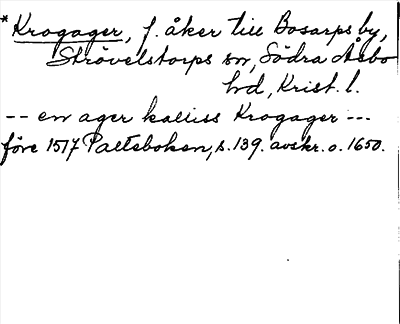 *Krogager, f. åker till Bosarps by,
Strövelstorps sn, Södra Åsbo
hd, Krist. l.
-- en ager kalliss Krogager ---
före 1517 Palteboken, s. 139. avskr. o. 1650.